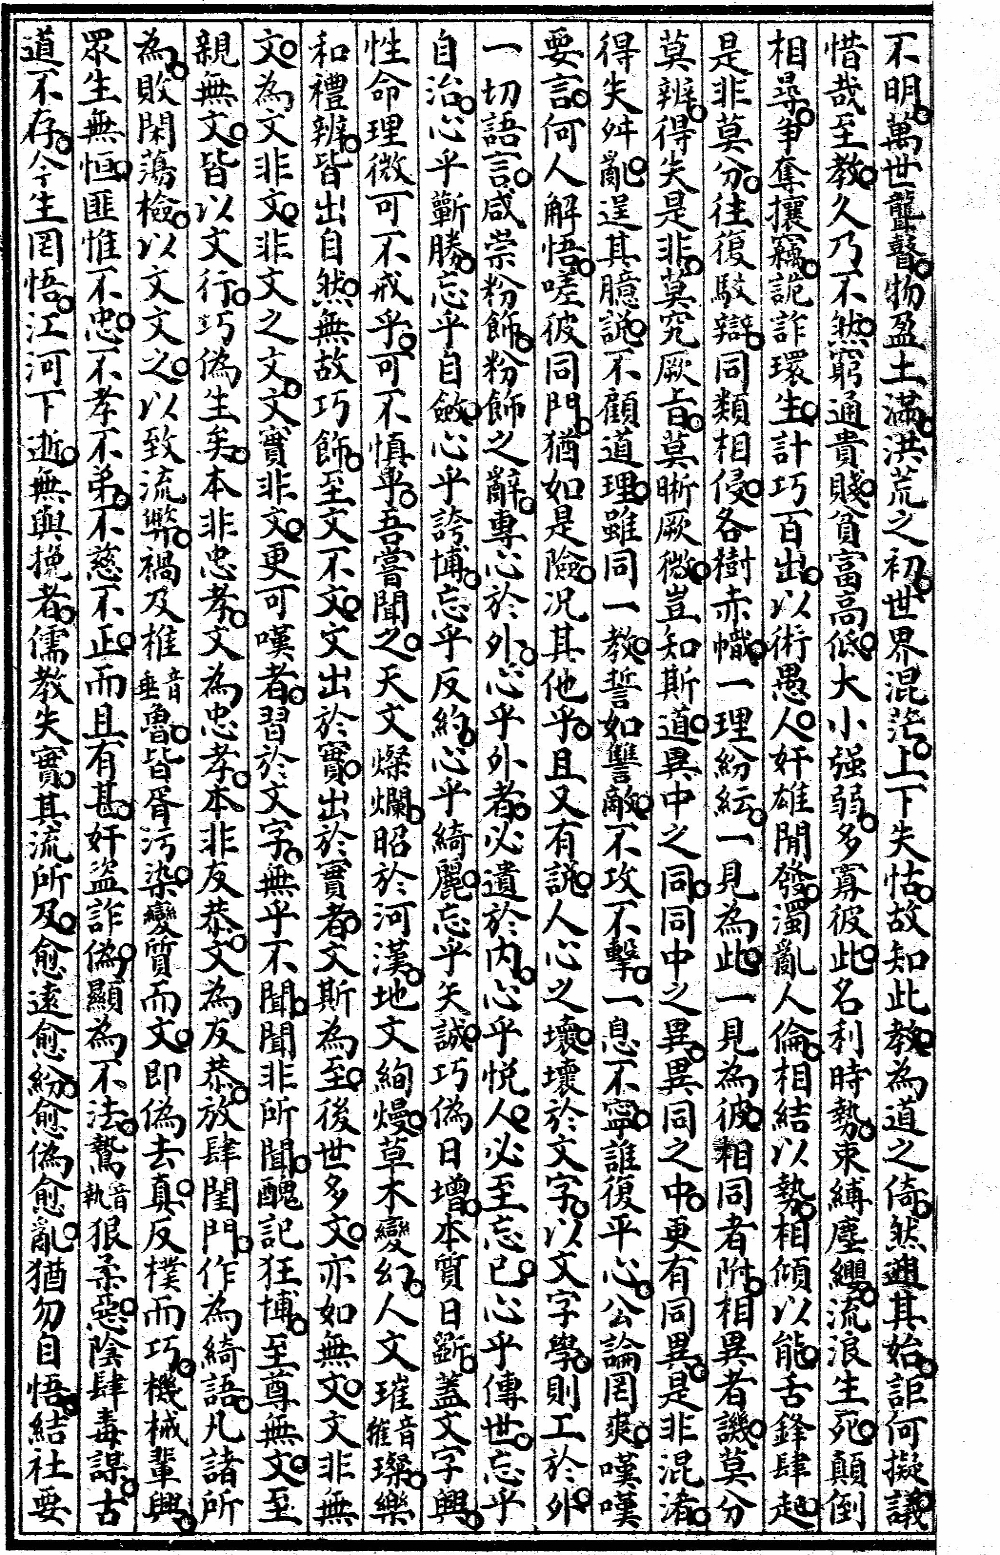 不明萬世聾瞽物盈土滿洪荒之初世界混茫上下失怙故知此教為道之倚然迦其始詎何擬議
惜哉至教久乃不然窮通貴賤貧富高低大小强弱多寡彼此名利時勢束縛塵纓流浪生死顛倒
相尋爭奪攘竊詭詐環生計巧百出以術愚人奸雄閒發濁亂人倫相結以勢相傾以能舌鋒肆起
是非莫分往復駁辯同類相侵各樹赤幟一理紛紜一見為此一見為彼相同者附相異者譏莫分
莫辨得失是非莫究厥旨莫晰厥微豈知斯道異中之同同中之異異同之中更有同異是非混淆
得失舛亂逞其臆說不顧道理雖同一教誓如讐敵不攻不擊一息不寧誰復平心公論罔爽嘆嘆
要言何人解悟嗟彼同門猶如是險况其他乎且又有說人心之壞壞於文字以文字學則工於外
一切語言咸崇粉飾粉飾之辭專心於外心乎外者必遺於内心乎悦人必至忘已心乎傳世忘乎
自治心乎蘄勝忘乎自斂心乎誇博忘乎反約心乎綺麗忘乎矢誠巧偽日增本質日斵蓋文字興
性命理微可不戒乎可不慎乎吾嘗聞之天文燦爛昭於河漢地文絢熳草木變幻人文璀音催璨樂
和禮辨皆出自然無故巧飾至文不文文出於實出於實者文斯為至後世多文亦如無文文非無
文為文非文非文之文文實非文更可嘆者習於文字無乎不聞聞非所聞醜記狂博至尊無文至
親無文皆以文行巧偽生矣本非忠孝文為忠孝本非友恭文為友恭放肆閨門作為綺語凡諸所
為敗閑蕩檢以文文之以致流弊禍及椎音垂魯皆胥污染變質而文即偽去真反樸而巧機械輩興
眾生無恒匪惟不忠不孝不弟不慈不正而且有甚奸盜詐偽顯為不法鷙音執狠柔惡陰肆毒謀古
道不存今生罔悟江河下逝無與挽者儒教失實其流所及愈遠愈紛愈偽愈亂猶勿自悟結社要